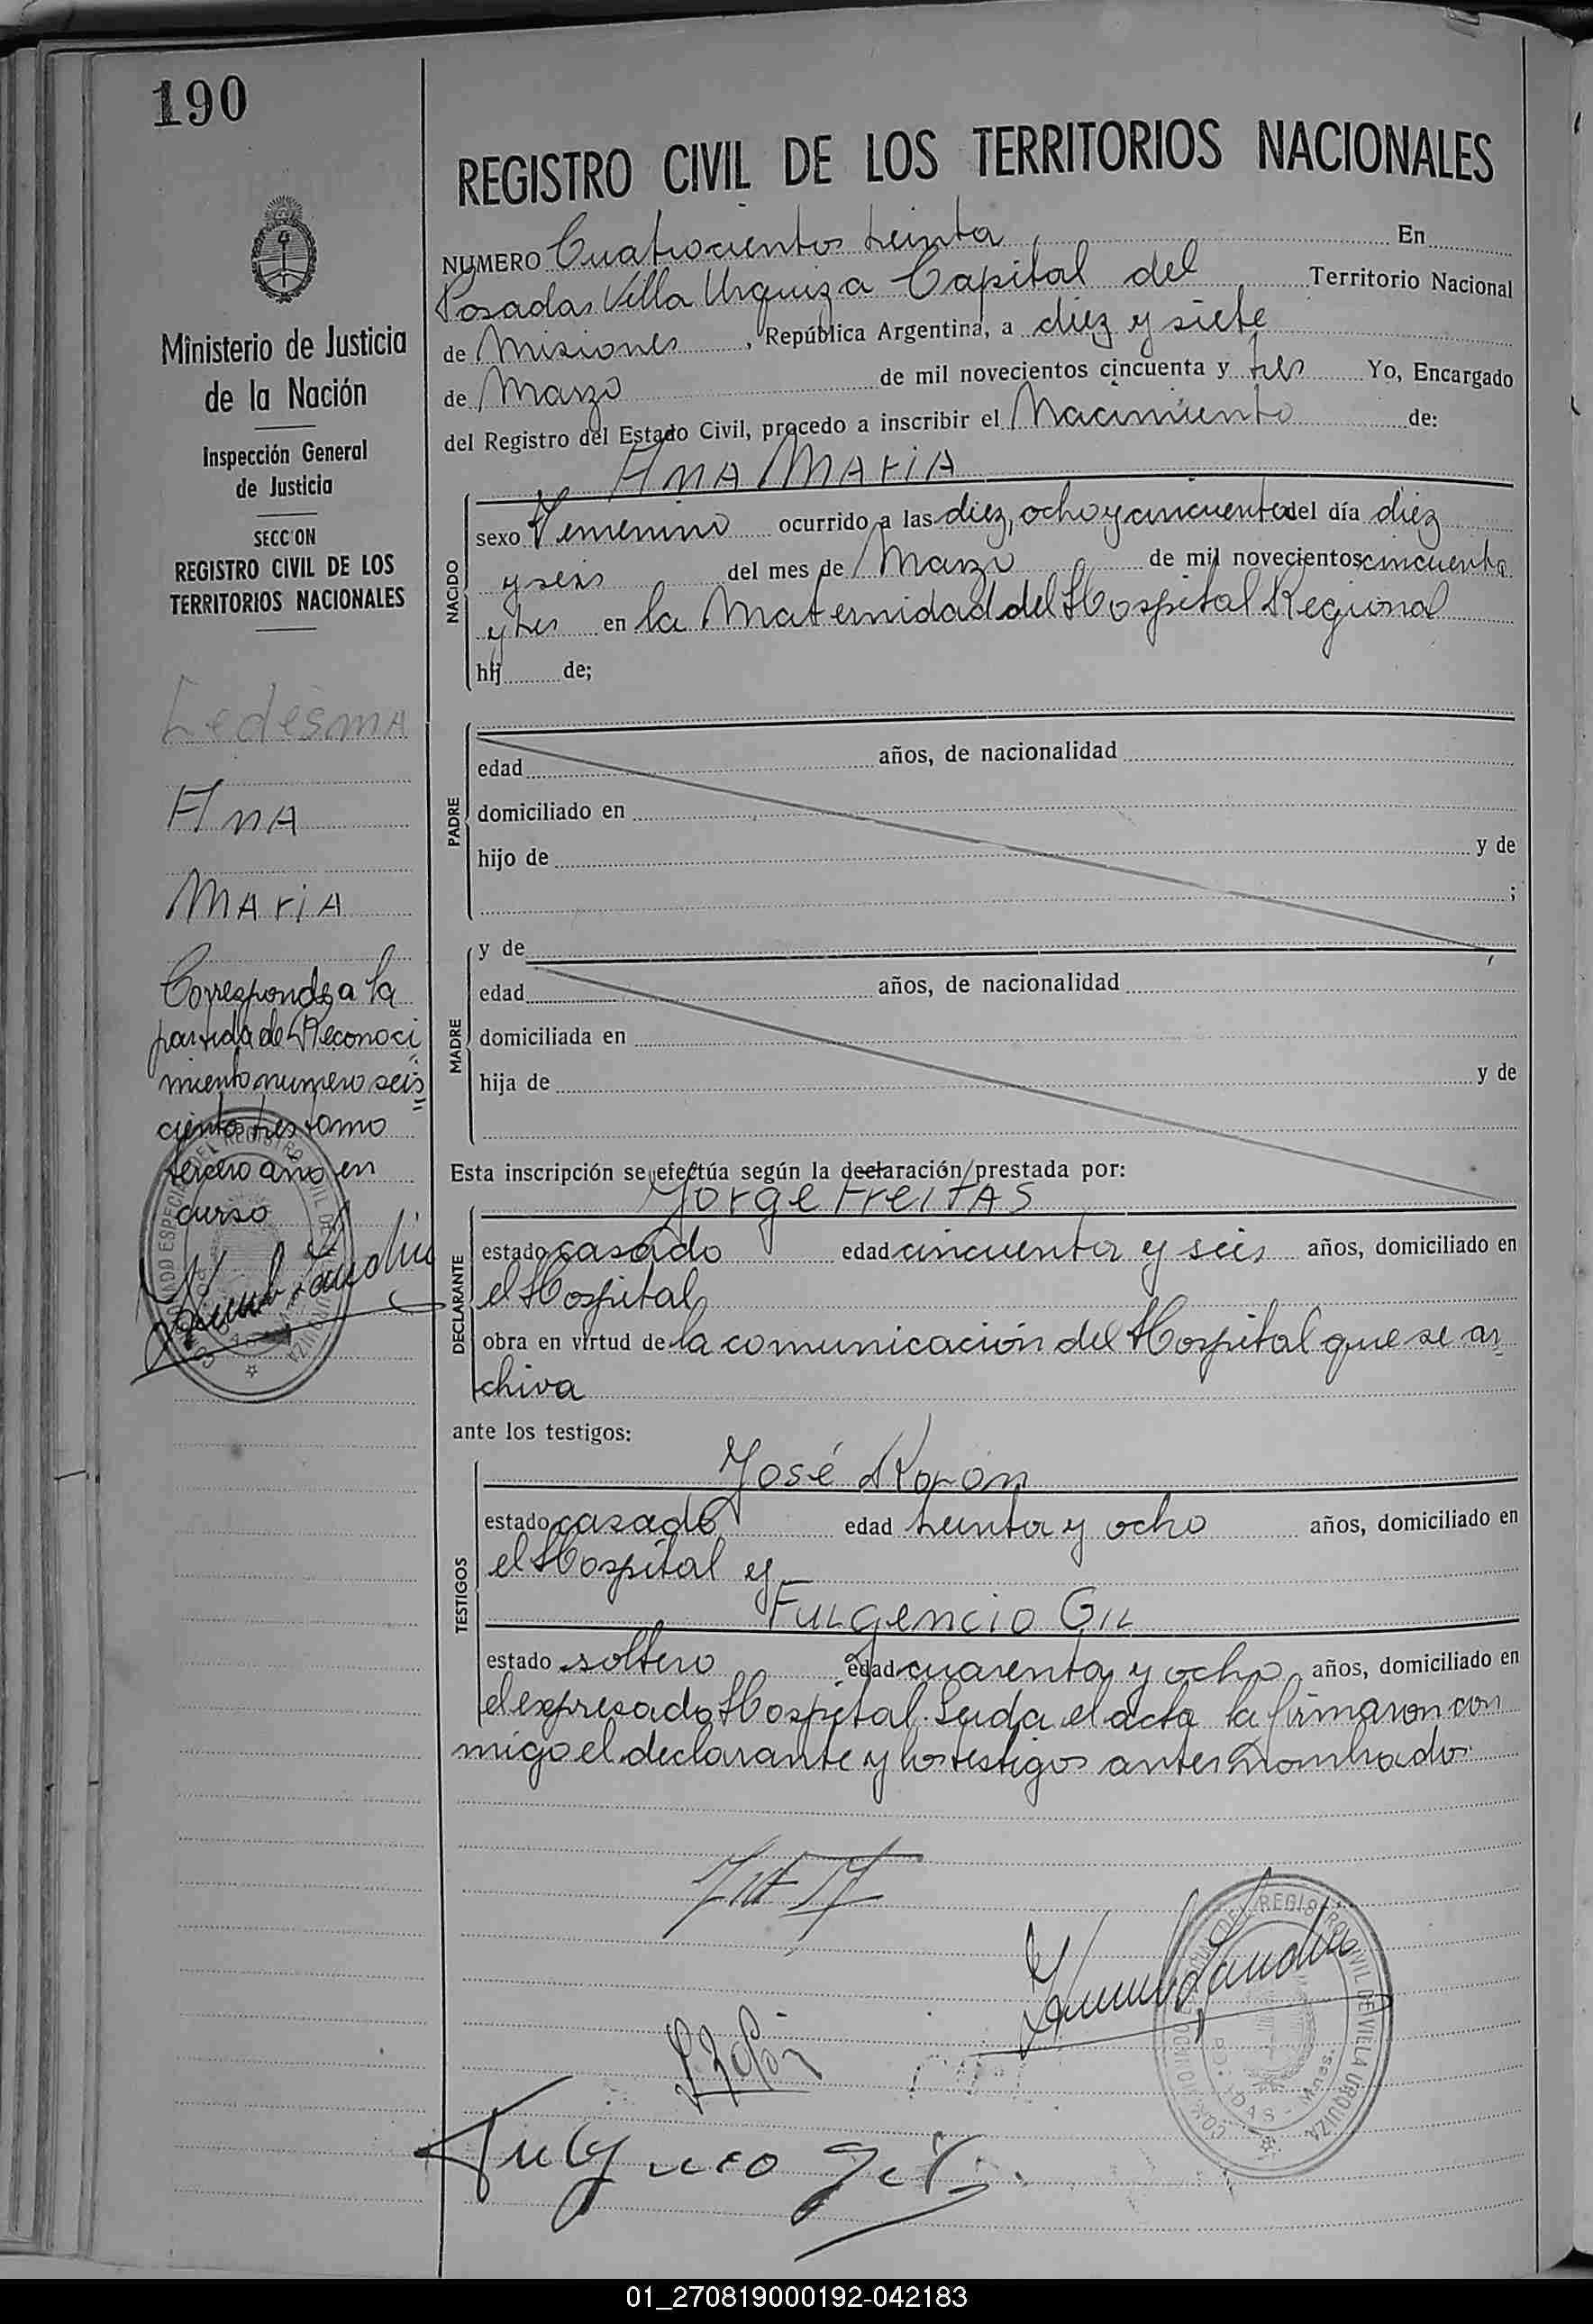 190
REGISTRO CIVIL DE LOS TERRITORIOS NACIONALES
Ministerio de Justicia
de la Nación
Inspección General
de Justicia
SECCION
REGISTRO CIVIL DE LOS
TERRITORIOS NACIONALES
Ledesma
Ana
Maria
Corresponde a la
partida de Reconoci
miento numero seis
ciento tres tomo
tercero año en
curso
NUMERO Cuatrocientos treinta En
Posadas Villa Urquiza Capital del Territorio Nacional
de Misiones, República Argentina, a diez y siete
de Marzo de mil novecientos cincuenta y tres Yo, Encargado
del Registro del Estado Civil, procedo a inscribir el Nacimiento de:
Ana Maria
NACIDO
sexo Femenino ocurrido a las diez, ocho y cincuenta del día diez
y seis del mes de Marzo de mil novecientos cincuenta
y tres en la Maternidad del Hospital Regional
hij de;
PADRE
edad años, de nacionalidad
domiciliado en
hijo de y de
;
MADRE
y de
edad años, de nacionalidad
domiciliada en
hija de y de
Esta inscripción se efectúa según la declaración prestada por:
Jorge Freitas
DECLARANTE
estado casado edad cincuenta y seis años, domiciliado en
el Hospital
obra en virtud de la comunicación del Hospital que se ar
chiva
ante los testigos:
José Ropón
TESTIGOS
estado casado edad treinta y ocho años, domiciliado en
el Hospital y
Fulgencio Gil
estado soltero edad cuarenta y ocho años, domiciliado en
el expresado Hospital. Leida el acta la firmaron con
migo el declarante y los testigos antes nombrados
REGISTRO CIVIL DE VILLA URQUIZA
POSADAS - Mnes.
01_270819000192-042183